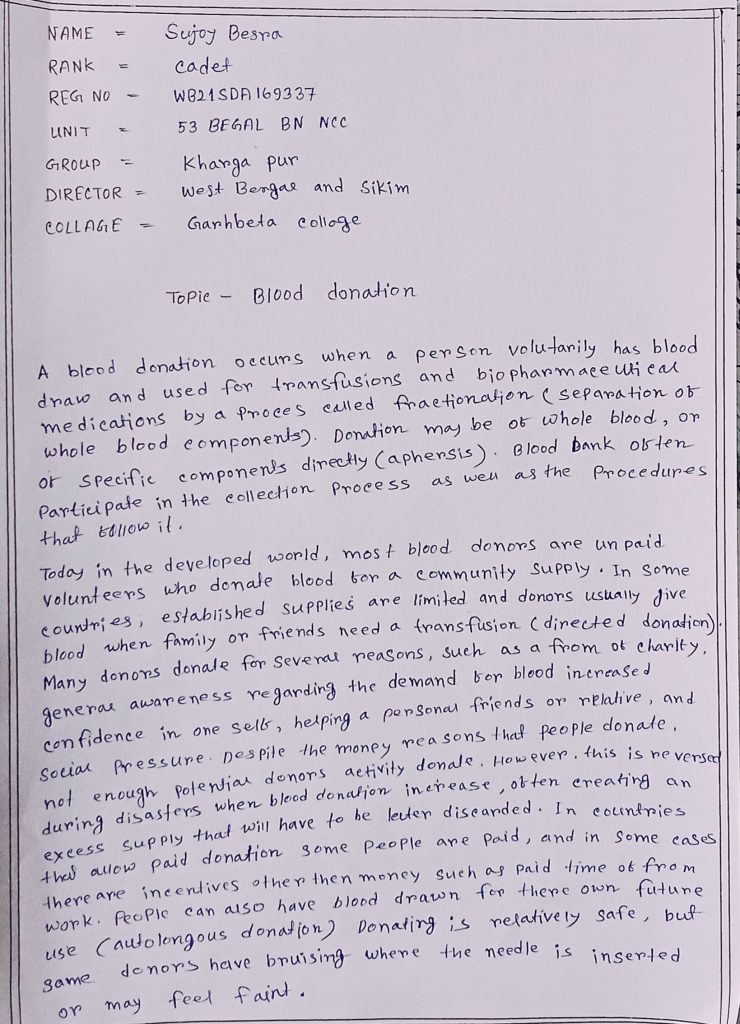 NAME = Sujoy Besra
RANK = cadet
REG NO - WB21SDA169337
UNIT = 53 BEGAL BN NCC
GROUP = Kharga pur
DIRECTOR = West Bengal and Sikim
COLLAGE = Garhbeta colloge
Topic - Blood donation
A blood donation occurs when a person volutarily has blood
draw and used for transfusions and biopharmaceutical
medications by a Proces called fractionation (separation of
whole blood components). Donation may be of whole blood, or
of specific components directly (aphersis). Blood bank often
Participate in the collection Process as well as the Procedures
that follow it.
Today in the developed world, most blood donors are unpaid
volunteers who donate blood for a community supply. In some
countries, established supplies are limited and donors usually give
blood when family or friends need a transfusion (directed donation).
Many donors donate for several reasons, such as a from of charity,
general awareness regarding the demand for blood increased
confidence in one self, helping a personal friends or relative, and
social Pressure. Despite the money reasons that people donate,
not enough potential donors activity donate. However, this is reversed
during disasters when blood donation increase, often creating an
excess supply that will have to be leuter discarded. In countries
that allow paid donation some people are paid, and in some cases
there are incentives other then money such as paid time of from
work. People can also have blood drawn for there own future
use (autolongous donation) Donating is relatively safe, but
same donors have bruising where the needle is inserted
or may feel faint.